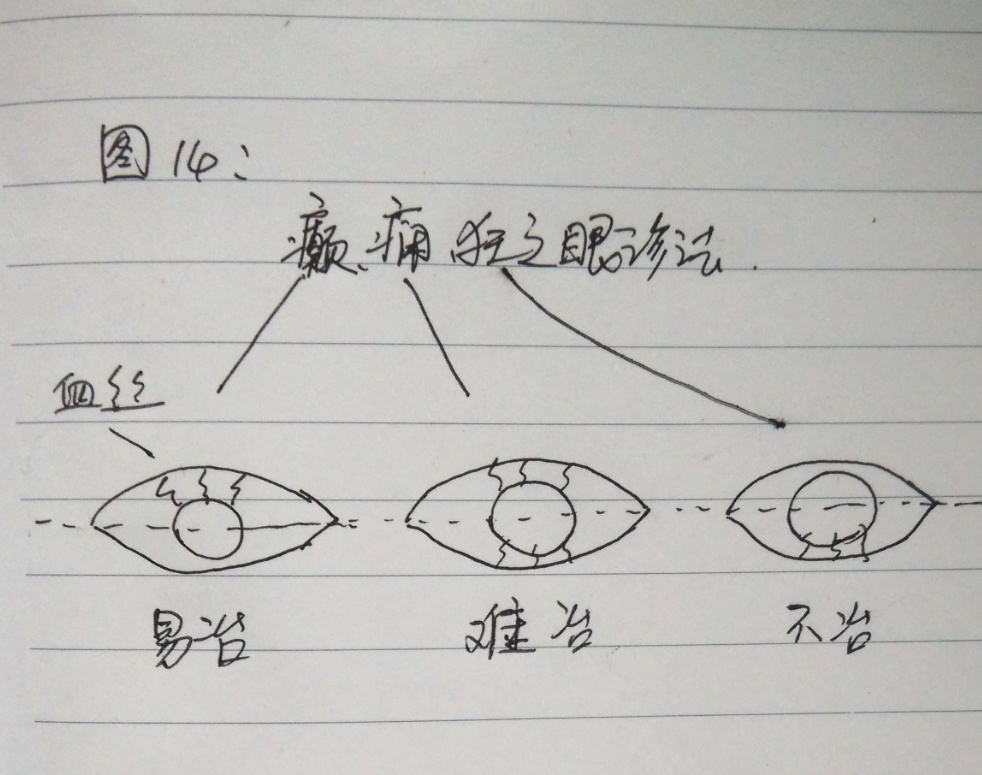 图14:
癫、痫、狂之眼诊法.
血丝
易治
难治
不治